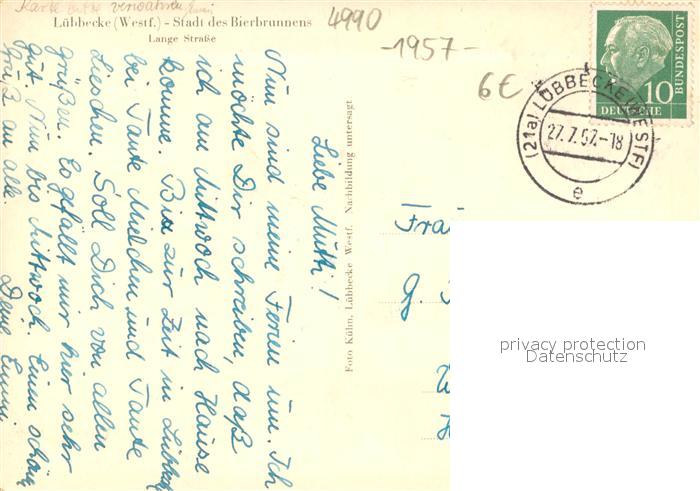 Karte bitte verwahren, Emmi
Lübbecke (Westf.) - Stadt des Bierbrunnens
Lange Straße
4990
-1957-
6€
10
DEUTSCHE
BUNDESPOST
(21a) LÜBBECKE (WESTF)
27.7.57.-18
e
Foto Kühn, Lübbecke Westf. Nachbildung untersagt
Liebe Mutti!
Nun sind meine Ferien um. Ich
möchte Dir schreiben, daß
ich am Mittwoch nach Hause
komme. Bin zur Zeit in Lübbecke
bei Tante Mielchen und Tante
Lieschen. Soll Dich von allen
grüßen. Es gefällt mir hier sehr
gut. Nun bis Mittwoch. Einen schönen
Gruß an alle.
Deine Emmi.
Frau
G.
privacy protection
Datenschutz